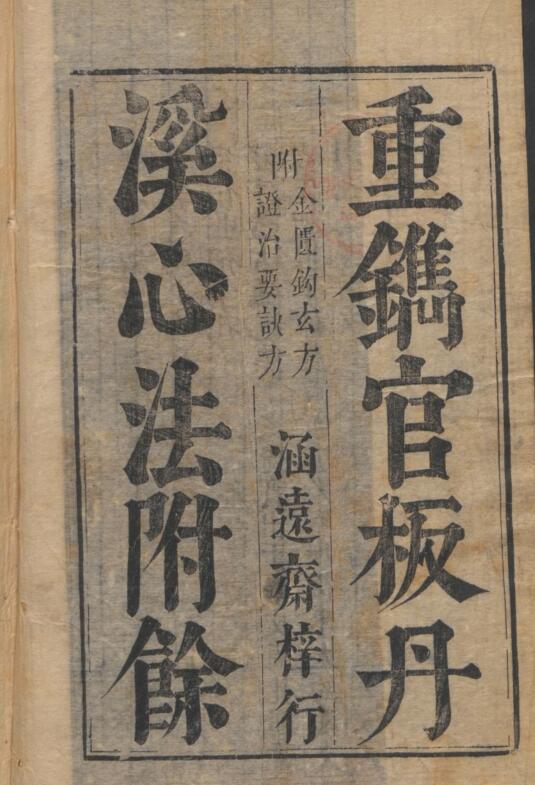 重鐫官板丹
附金匱鈎玄方
證治要訣方
涵遠齋梓行
溪心法附餘